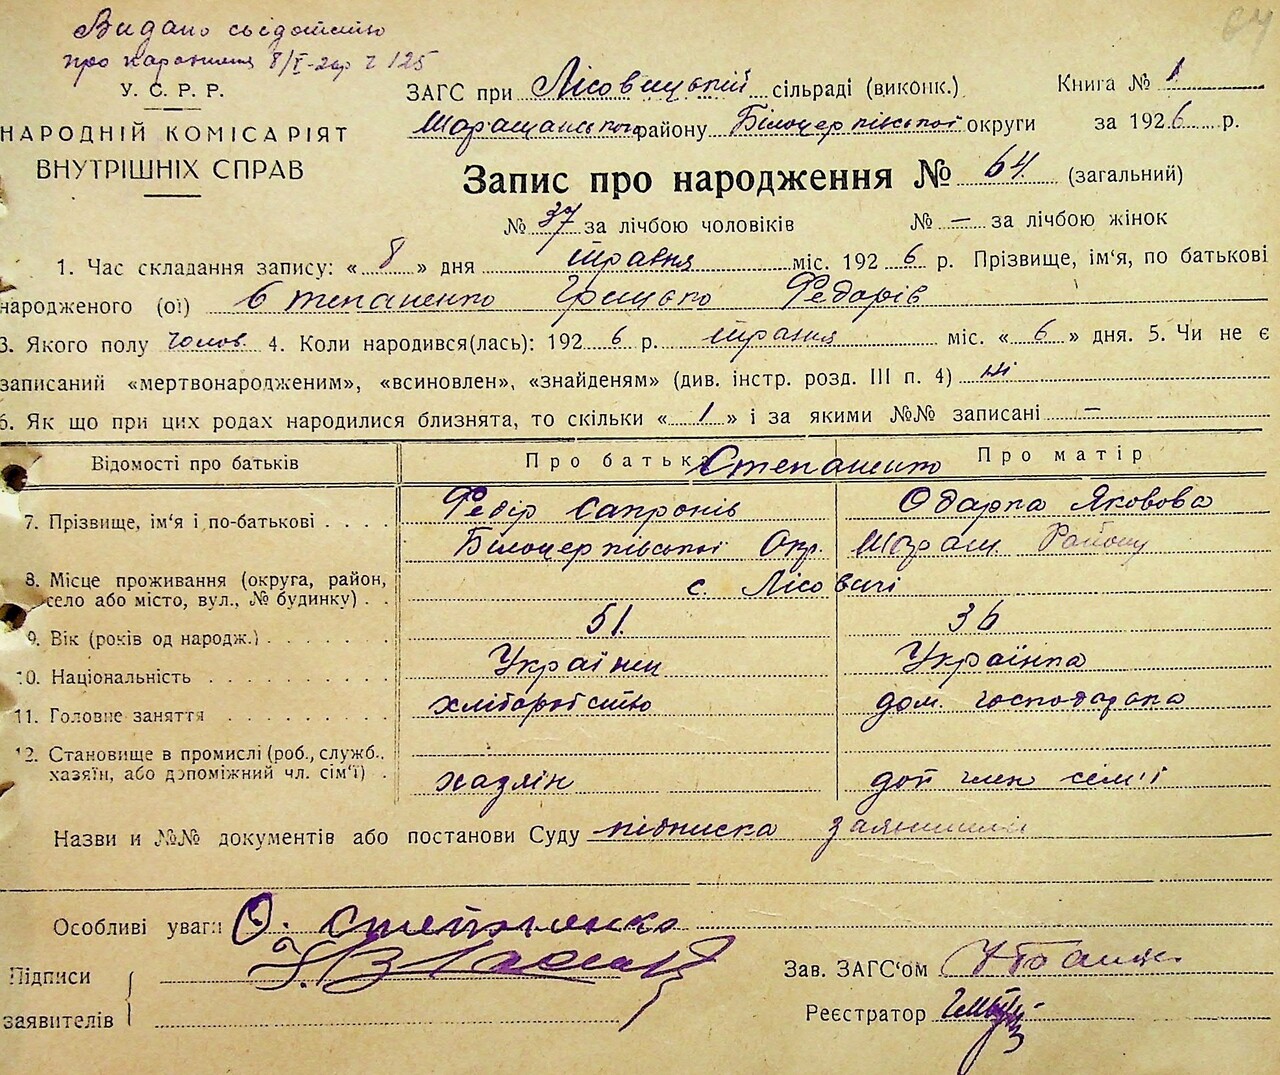 64
Видано сьвідотство
про народження 8/V-26р ч 125
У. С. Р. Р.
НАРОДНІЙ КОМІСАРІЯТ
ВНУТРІШНІХ СПРАВ
ЗАГС при Лісовицькій сільраді (виконк.) Книга № 1
Таращанського району Білоцерківської округи за 1926 р.
Запис про народження № 64 (загальний)
№ 37 за лічбою чоловіків № — за лічбою жінок
1. Час складання запису: « 8 » дня травня міс. 1926 р. Прізвище, ім'я, по батькові
народженого (ої) Степаненко Грицько Федорів
3. Якого полу чолов. 4. Коли народився(лась): 1926 р. травня міс. « 6 » дня. 5. Чи не є
записаний «мертвонародженим», «всиновлен», «знайденям» (див. інстр. розд. III п. 4) ні
6. Як що при цих родах народилися близнята, то скільки « 1 » і за якими №№ записані —
Відомості про батьків Про батька Степаненко Про матір
7. Прізвище, ім'я і по-батькові . . . . Федір Сапронів Одарка Яковова
Білоцерківської Окр. Таращ. Району
8. Місце проживання (округа, район, село або місто, вул., № будинку) . . с. Лісовичі
9. Вік (років од народж.) . . . . . . . 51. 36
10. Національність . . . . . . . . . Українец Українка
11. Головне заняття . . . . . . . . хліборобство дом. господарка
12. Становище в промислі (роб., служб., хазяїн, або допоміжний чл. сім'ї) . хазяїн доп член сем'ї
Назви и №№ документів або постанови Суду підписка
Особливі уваги О.
Підписи
заявителів
Зав. ЗАГС'ом
Реєстратор